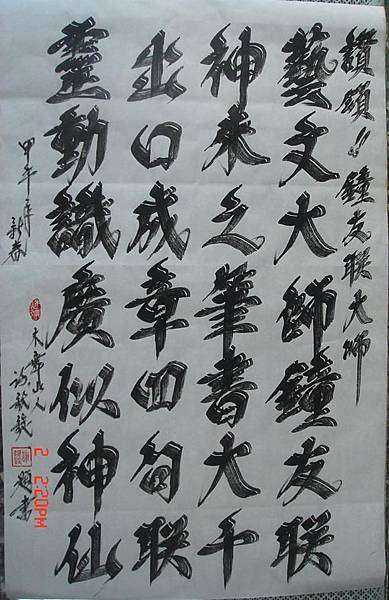 讚頌!!鐘友联大师
藝文大師鐘友联
神来之筆書大千
出口成章四句联
靈動識廣似神仙
甲午年新春
木章山人
題書
2 2:20PM